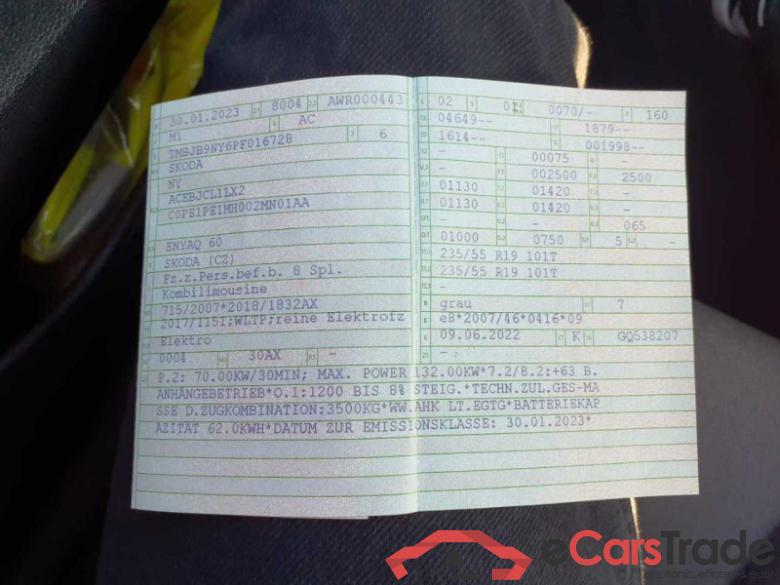 30.01.2023 8004 AWR000443
M1 AC
TMBJB9NY6PF016728 6
SKODA
NY
ACEBJCL1LX2
C0PE1PE1MH002MN01AA
ENYAQ 60
SKODA (CZ)
Fz.z.Pers.bef.b. 8 Spl.
Kombilimousine
715/2007*2018/1832AX
2017/1151;WLTP;reine Elektrofz
Elektro
0004 30AX -
02 0070/- 160
04649-- 1879--
1614-- 001998--
- 00075 -
- 002500 2500
01130 01420 -
01130 01420 -
- - 065
01000 0750 5 -
235/55 R19 101T
235/55 R19 101T
-
grau 7
e8*2007/46*0416*09
09.06.2022 K GQ538207
-
P.2: 70.00KW/30MIN; MAX. POWER 132.00KW*7.2/8.2:+63 B.
ANHÄNGEBETRIEB*O.1:1200 BIS 8% STEIG.*TECHN.ZUL.GES-MA
SSE D.ZUGKOMBINATION:3500KG*WW.AHK LT.EGTG*BATTERIEKAP
AZITÄT 62.0KWH*DATUM ZUR EMISSIONSKLASSE: 30.01.2023*
eCarsTrade